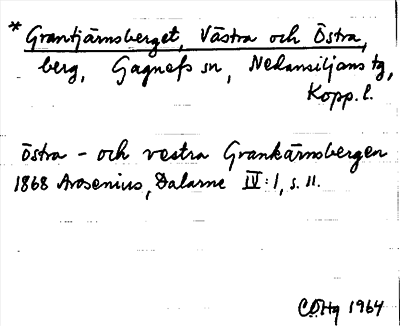 * Grantjärnsberget, Västra och Östra,
berg, Gagnefs sn, Nedansiljans tg,
Kopp. l.
Östra - och vestra Grankärnsbergen
1868 Arosenius, Dalarne IV:1, s. 11.
CDHg 1964